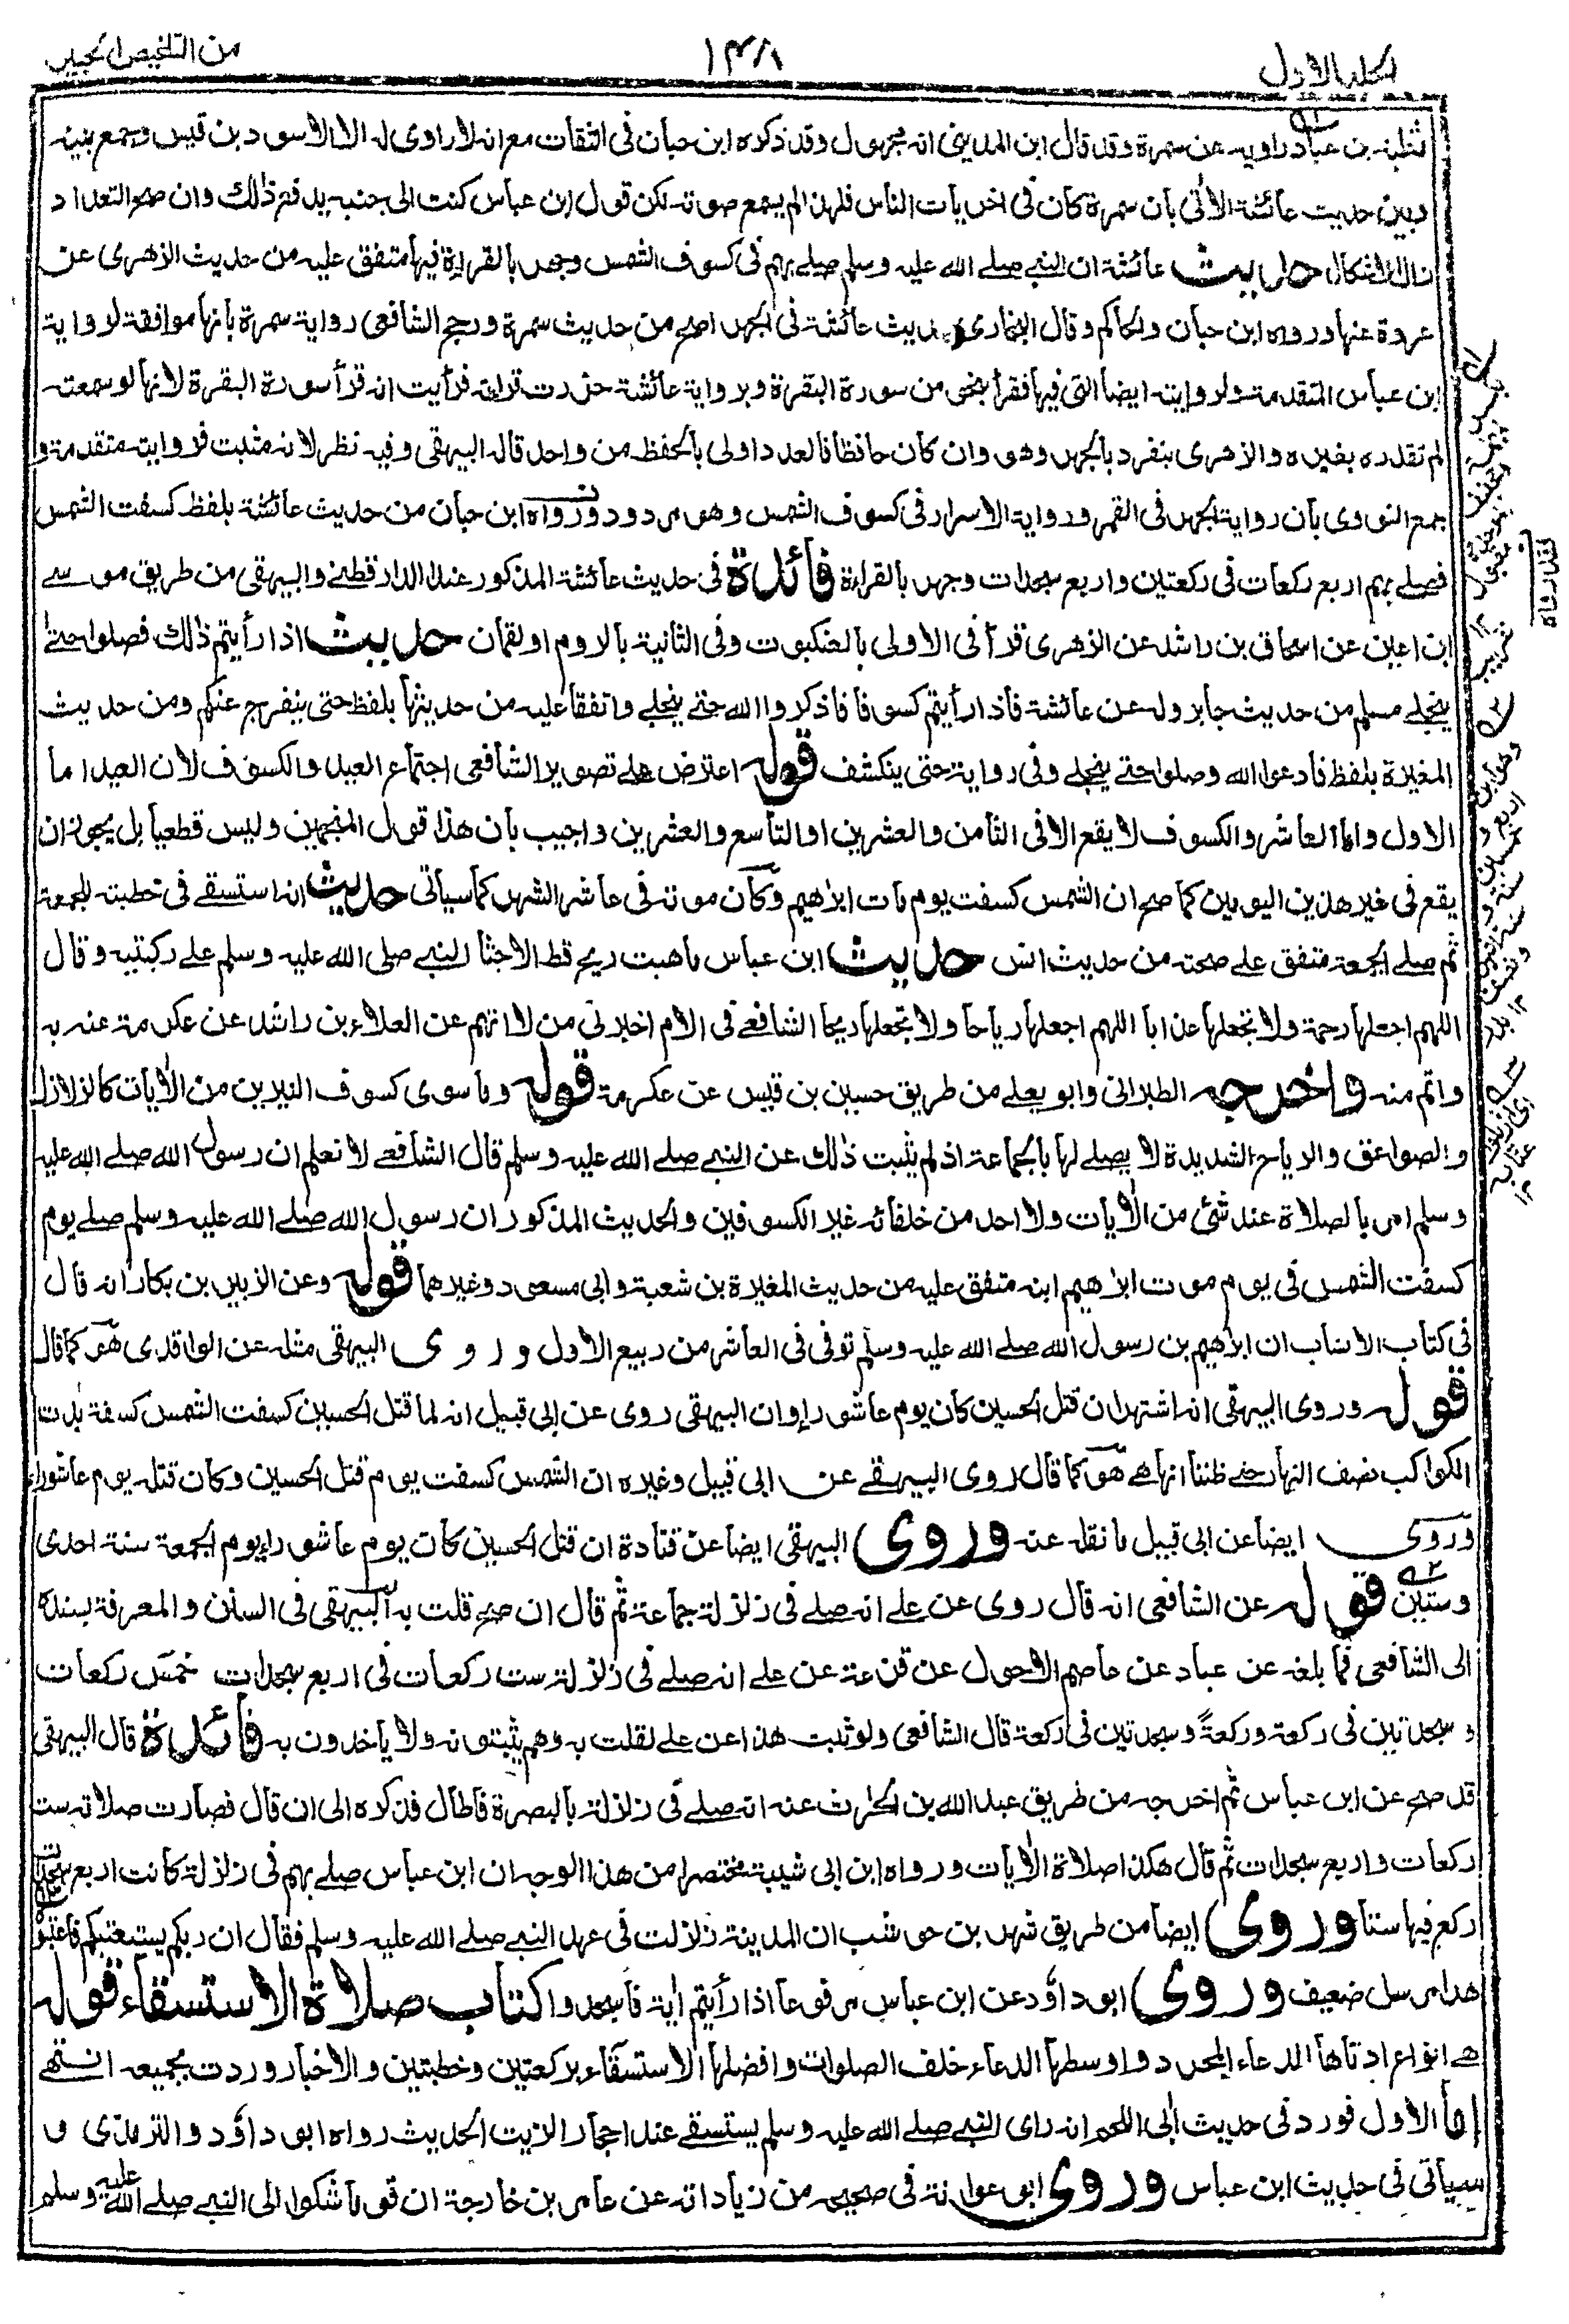 الجلد الاول
١٤٨
من التلخيص الحبير
ثعلبة بن عباد راويه عن سمرة وقد قال ابن المديني انه مجهول وقد ذكره ابن حبان في الثقات مع انه لا راوى له الا الاسود بن قيس وجمع بينه
وبين حديث عائشة الاتى بان سمرة كان فى اخريات الناس فلهذا لم يسمع صوته لكن قول ابن عباس كنت الى جنبه يدفع ذلك وان صح التعداد
زال الاشكال حديث عائشة ان النبي صلے الله عليه وسلم صلے بهم فى كسوف الشمس وجهر بالقراءة فيها متفق عليه من حديث الزهرى عن
عروة عنها ورواه ابن حبان والحاكم وقال البخارى حديث عائشة فى الجهر اصح من حديث سمرة ورجح الشافعى رواية سمرة بانها موافقة لرواية
ابن عباس المتقدمة ولروايته ايضا التى فيها فقرأ بنحو من سورة البقرة وبرواية عائشة حزرت قراءته فرأيت انه قرأ سورة البقرة لانها لو سمعته
لم تقدره بغيره والزهرى ينفرد بالجهر وهو وان كان حافظا فالعدد اولى بالحفظ من واحد قاله البيهقى وفيه نظر لانه مثبت فروايته متقدمة و
جمع النووى بان رواية الجهر فى القمر ورواية الاسرار فى كسوف الشمس وهو مردود ورواه ابن حبان من حديث عائشة بلفظ كسفت الشمس
فصلے بهم اربع ركعات فى ركعتين واربع سجدات وجهر بالقراءة فائدة فى حديث عائشة المذكور عند الدارقطنے والبيهقى من طريق موسے
ابن اعين عن اسحاق بن راشد عن الزهرى قرأ فى الاولى بالعنكبوت وفى الثانية بالروم او لقمان حديث اذا رأيتم ذلك فصلوا حتے
ينجلے مسلم من حديث جابر وله عن عائشة فاذا رأيتم كسوفا فاذكروا الله حتے ينجلے واتفقا عليه من حديثها بلفظ حتى ينفرج عنكم ومن حديث
المغيرة بلفظ فادعوا الله وصلوا حتے ينجلے وفى رواية حتى ينكشف قوله اعترض علے تصوير الشافعى اجتماع العيد والكسوف لان العيد اما
الاول واما العاشر والكسوف لا يقع الا فى الثامن والعشرين او التاسع والعشرين واجيب بان هذا قول المنجمين وليس قطعيا بل يجوز ان
يقع فى غير هذين اليومين كما صح ان الشمس كسفت يوم مات ابراهيم وكان موته فى عاشر الشهر كما سياتى حديث انه استسقے فى خطبته للجمعة
ثم صلے الجمعة متفق علے صحته من حديث انس حديث ابن عباس ما هبت ريح قط الا جثا النبے صلى الله عليه وسلم علے ركبتيه وقال
اللهم اجعلها رحمة ولا تجعلها عذابا اللهم اجعلها رياحا ولا تجعلها ريحا الشافعے فى الام اخبرنى من لا اتهم عن العلاء بن راشد عن عكرمة عنه به
واتم منه واخرجه الطبرانى وابو يعلے من طريق حسين بن قيس عن عكرمة قوله وما سوى كسوف النيرين من الآيات كالزلازل
والصواعق والرياح الشديدة لا يصلے لها بالجماعة اذ لم يثبت ذلك عن النبے صلے الله عليه وسلم قال الشافعے لا نعلم ان رسول الله صلے الله عليه
وسلم امر بالصلاة عند شئ من الآيات ولا احد من خلفائه غير الكسوفين والحديث المذكور ان رسول الله صلے الله عليه وسلم صلے يوم
كسفت الشمس فى يوم موت ابراهيم ابنه متفق عليه من حديث المغيرة بن شعبة وابى مسعود وغيرهما قوله وعن الزبير بن بكار انه قال
فى كتاب الانساب ان ابراهيم بن رسول الله صلے الله عليه وسلم توفى فى العاشر من ربيع الاول وروى البيهقى مثله عن الواقدى هو كما قال
قوله وروى البيهقى انه اشتهر ان قتل الحسين كان يوم عاشوراء وان البيهقى روى عن ابى قبيل انه لما قتل الحسين كسفت الشمس كسفة بدت
الكواكب نصف النهار حتے ظننا انها هے هو كما قال روى البيهقے عن ابى قبيل وغيره ان الشمس كسفت يوم قتل الحسين وكان قتله يوم عاشوراء
وروى ايضا عن ابى قبيل ما نقله عنه وروى البيهقى ايضا عن قتادة ان قتل الحسين كان يوم عاشوراء يوم الجمعة سنة احدى
وستين قوله عن الشافعى انه قال روى عن علے انه صلے فى زلزلة جماعة ثم قال ان صح قلت به البيهقى فى السنن والمعرفة بسنده
الى الشافعى فما بلغه عن عباد عن عاصم الاحول عن قزعة عن علے انه صلے فى زلزلة ست ركعات فى اربع سجدات خمس ركعات
و سجدتين فى ركعة وركعةً وسجدتين فى ركعة قال الشافعى ولو ثبت هذا عن علے لقلت به وهم يثبتونه ولا ياخذون به فائدة قال البيهقى
قد صح عن ابن عباس ثم اخرجه من طريق عبد الله بن الحرث عنه انه صلے فى زلزلة بالبصرة فاطال فذكره الى ان قال فصارت صلاته ست
ركعات واربع سجدات ثم قال هكذا صلاة الآيات ورواه ابن ابى شيبة مختصرا من هذا الوجه ان ابن عباس صلے بهم فى زلزلة كانت اربع سجدات
ركع فيها ستا وروى ايضا من طريق شهر بن حوشب ان المدينة زلزلت فى عهد النبے صلے الله عليه وسلم فقال ان ربكم يستعتبكم فاعتبوه
هذا مرسل ضعيف وروى ابو داؤد عن ابن عباس مرفوعا اذا رأيتم اٰية فاسجدوا كتاب صلاة الاستسقاء قوله
هے انواع ادناها الدعاء المجرد واوسطها الدعاء خلف الصلوات وافضلها الاستسقاء بركعتين وخطبتين والاخبار وردت بجميعه انتهے
اما الاول فورد فى حديث اٰبى اللحم انه راى النبے صلے الله عليه وسلم يستسقے عند احجار الزيت الحديث رواه ابو داؤد والترمذى و
سياتى فى حديث ابن عباس وروى ابو عوانة فى صحيحه من زياداته عن عامر بن خارجة ان قوما شكوا الى النبے صلے الله عليه وسلم